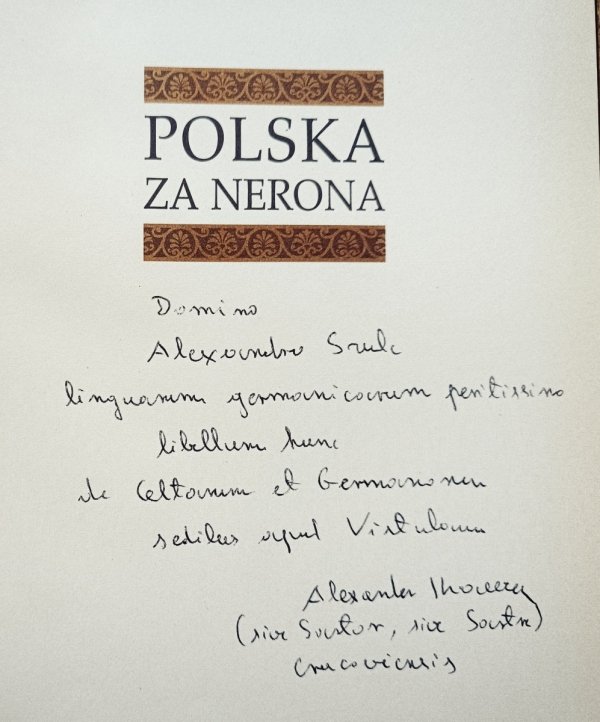 POLSKA
ZA NERONA
Domino
Alexandro Szulc
linguarum germanicarum peritissimo
libellum hunc
de Celtarum et Germanorum
sedibus apud Vistulam
Alexander
(sive Sartor, sive
Cracoviensis